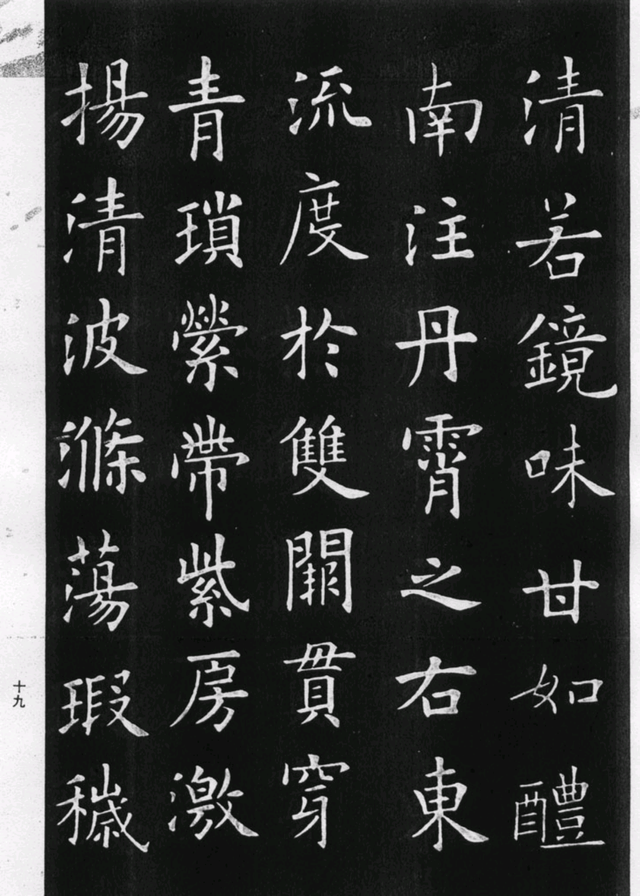 清若鏡味甘如醴
南注丹霄之右東
流度於雙闕貫穿
青瑣縈帶紫房激
揚清波滌蕩瑕穢
十九